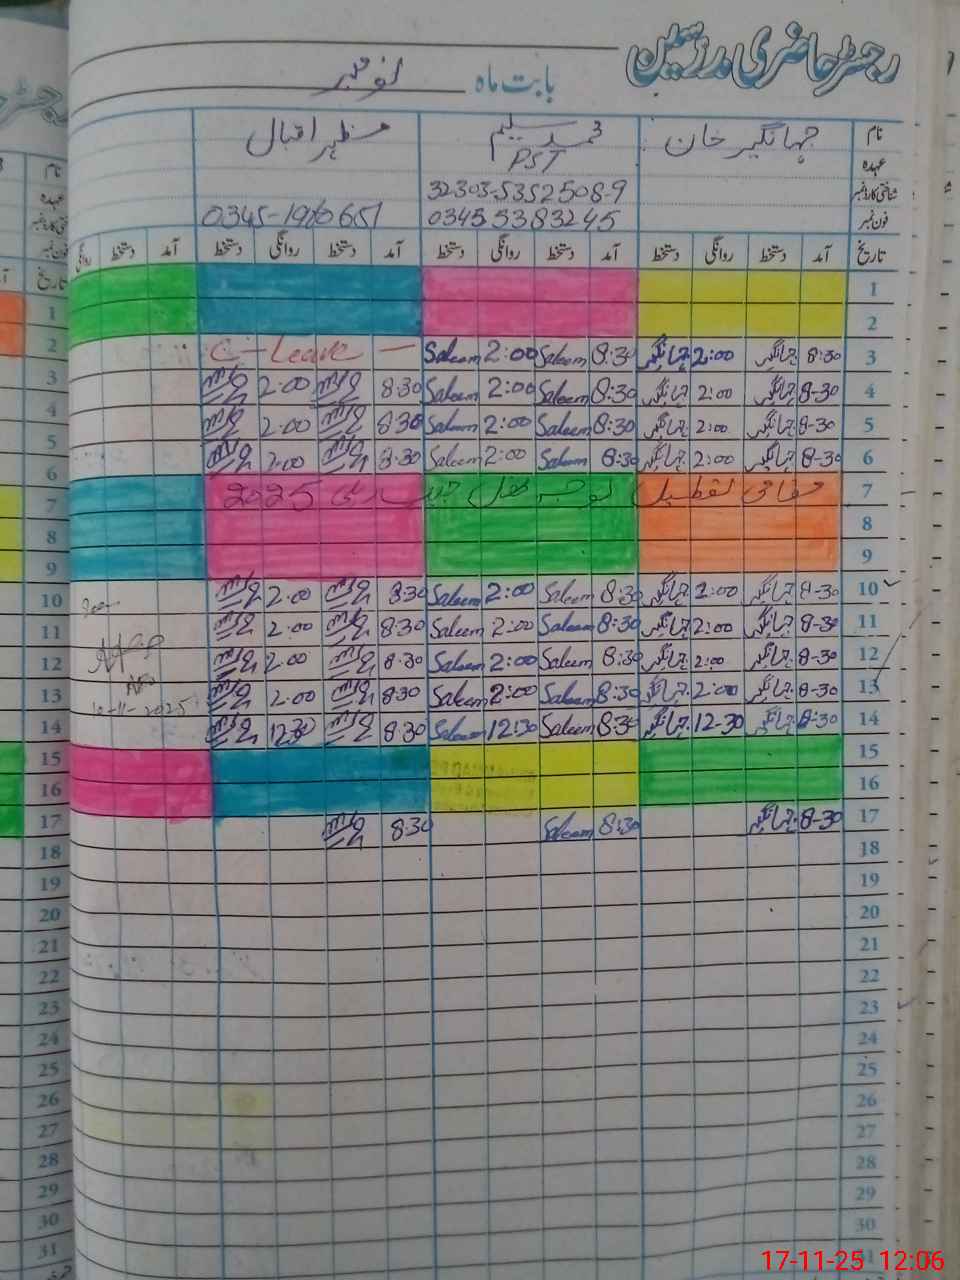 رجسٹر حاضری مدرسین
بابت ماہ نومبر
نام جہانگیر خان محمد سلیم مظہر اقبال
عہدہ PST
شناختی کارڈ نمبر 32303-5352508-9
فون نمبر 03455383245 0345-1960651
تاریخ آمد دستخط روانگی دستخط آمد دستخط روانگی دستخط آمد دستخط روانگی دستخط آمد دستخط روانگی
1
2
3 8:30 جہانگیر 2:00 جہانگیر 8:30 Saleem 2:00 Saleem C-Leave
4 8-30 جہانگیر 2:00 جہانگیر 8:30 Saleem 2:00 Saleem 8.30 2.00
5 8-30 جہانگیر 2:00 جہانگیر 8:30 Saleem 2:00 Saleem 8.30 2.00
6 8-30 جہانگیر 2:00 جہانگیر 8:30 Saleem 2:00 Saleem 8.30 2.00
7 مقامی تعطیل بوجہ 2025
8
9
10 8-30 جہانگیر 2:00 جہانگیر 8:30 Saleem 2:00 Saleem 8.30 2.00
11 8-30 جہانگیر 2:00 جہانگیر 8:30 Saleem 2:00 Saleem 8.30 2.00
12 8-30 جہانگیر 2:00 جہانگیر 8:30 Saleem 2:00 Saleem 8.30 2.00
13 8-30 جہانگیر 2:00 جہانگیر 8:30 Saleem 2:00 Saleem 8.30 2.00
14 8-30 جہانگیر 12-30 جہانگیر 8:30 Saleem 12:30 Saleem 8.30 12.30
15
16
17 8-30 جہانگیر 8:30 Saleem 8.30
18
19
20
21
22
23
24
25
26
27
28
29
30
31
17-11-25 12:06